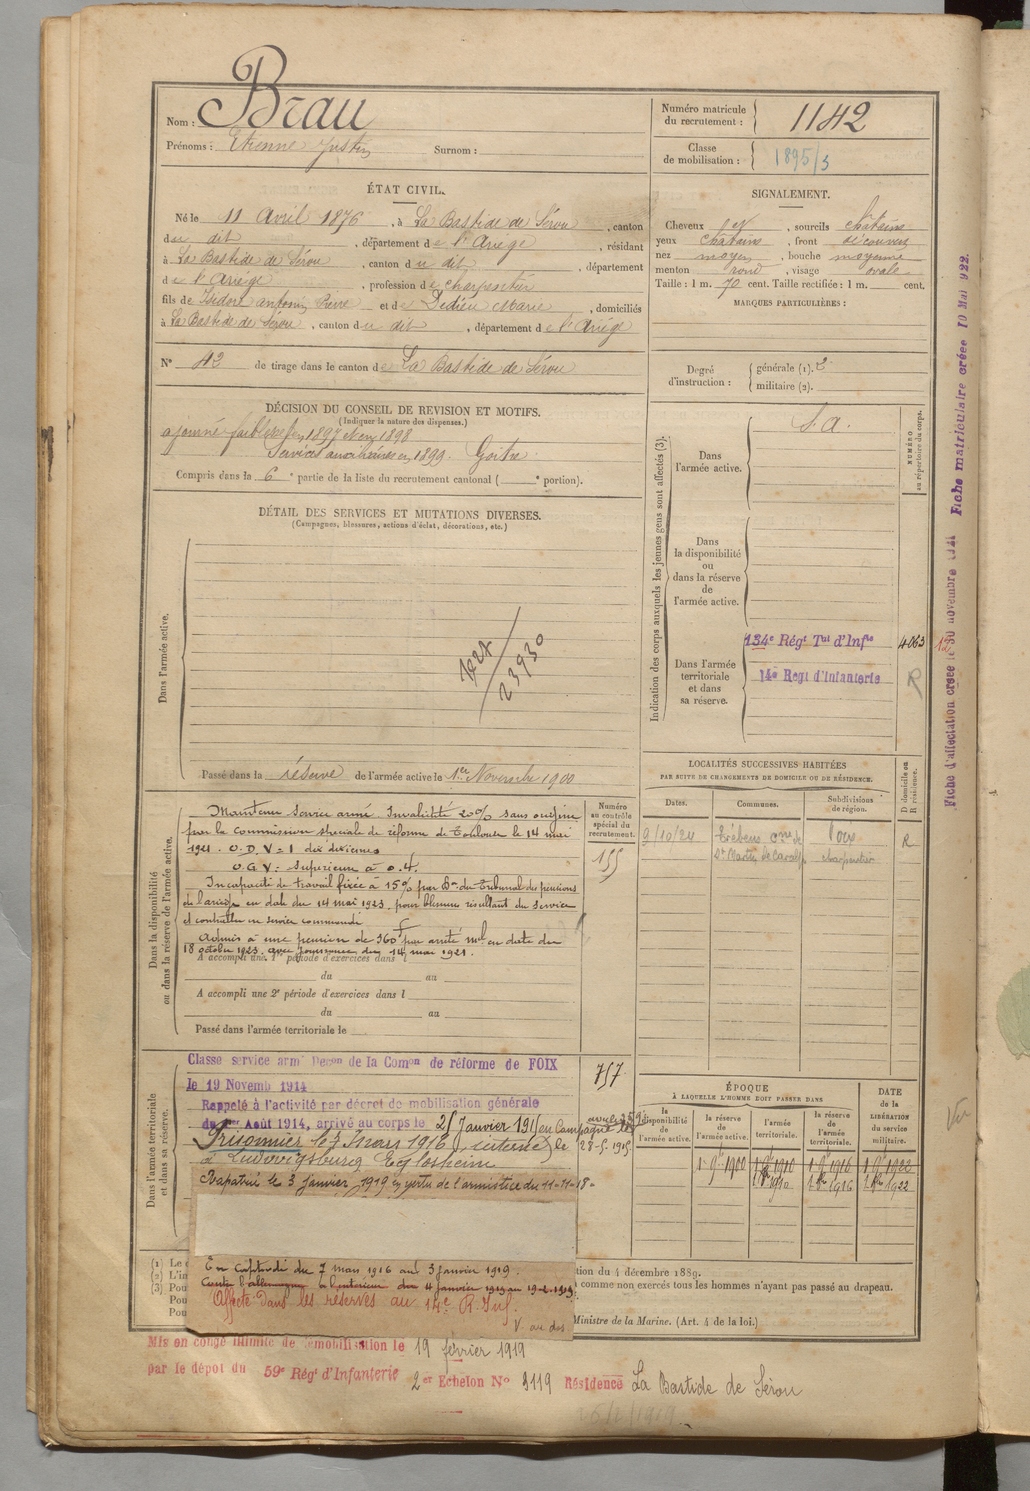 Nom : Brau
Prénoms : Etienne Justin Surnom :
Numéro matricule du recrutement : 1142
Classe de mobilisation : 1895/3
ÉTAT CIVIL.
Né le 11 Avril 1876, à La Bastide de Sérou, canton
du dit, département de l'Ariège, résidant
à La Bastide de Sérou, canton du dit, département
de l'Ariège, profession de charpentier
fils de Isidore antonin Pierre et de Dedieu Marie, domiciliés
à La Bastide de Sérou, canton du dit, département de l'Ariège
N° 42 de tirage dans le canton de La Bastide de Sérou
SIGNALEMENT.
Cheveux et, sourcils châtains
yeux châtains, front découvert
nez moyen, bouche moyenne
menton rond, visage ovale
Taille : 1 m. 70 cent. Taille rectifiée : 1 m. cent.
MARQUES PARTICULIÈRES :
Degré d'instruction : générale (1). 2
militaire (2).
DÉCISION DU CONSEIL DE REVISION ET MOTIFS.
(Indiquer la nature des dispenses.)
ajourné faiblesse en 1897 et en 1898
Services auxiliaires en 1899. Goitre
Compris dans la 6e partie de la liste du recrutement cantonal ( e portion).
DÉTAIL DES SERVICES ET MUTATIONS DIVERSES.
(Campagnes, blessures, actions d'éclat, décorations, etc.)
Dans l'armée active.
23930
Passé dans la réserve de l'armée active le 1er Novembre 1900
Indication des corps auxquels les jeunes gens sont affectés (3).
NUMÉRO au répertoire du corps.
Dans l'armée active.
S.A.
Dans la disponibilité ou dans la réserve de l'armée active.
Dans l'armée territoriale et dans sa réserve.
134e Régt Tal d'Infie 4063
14e Regt d'Infanterie R
LOCALITÉS SUCCESSIVES HABITÉES
PAR SUITE DE CHANGEMENTS DE DOMICILE OU DE RÉSIDENCE.
D domicile ou R résidence.
Dates. Communes. Subdivisions de région.
9/10/24 Foix R
charpentier
Dans la disponibilité ou dans la réserve de l'armée active.
Numéro au contrôle spécial du recrutement.
155
Maintenu service armé. Invalidité 20% sans origine
par la commission spéciale de réforme de Toulouse le 14 mai
1921. O.D.V = 1 dix dixièmes
O.G.V = Supérieur à 0.4.
Incapacité de travail fixée à 15% par Don du Tribunal des pensions
de l'ariège en date du 14 mai 1923. pour blessure résultant du service
et contractée en service commandé
Admis à une pension de 360 f par arrêté mel en date du
18 octobre 1923. avec jouissance du 14 mai 1921.
A accompli une 1re période d'exercices dans l
du au
A accompli une 2e période d'exercices dans l
du au
Passé dans l'armée territoriale le
Dans l'armée territoriale et dans sa réserve.
757
Classe service armé Decon de la Comon de réforme de FOIX
le 19 Novemb 1914
Rappelé à l'activité par décret de mobilisation générale
du 1er Août 1914, arrivé au corps le 25 Janvier 1915
Prisonnier le 7 Mars 1916, interné
à Ludwigsburg Eglosheim
Rapatrié le 3 janvier 1919 en vertu de l'armistice du 11-11-18
En captivité du 7 mars 1916 au 3 janvier 1919.
Contre l'allemagne à l'intérieur du 4 janvier 1919 au 19-2-1919
Affecté dans les réserves au 14e R. Inf.
V. au dos
ÉPOQUE
À LAQUELLE L'HOMME DOIT PASSER DANS
la disponibilité de l'armée active. la réserve de l'armée active. l'armée territoriale. la réserve de l'armée territoriale.
DATE de la LIBÉRATION du service militaire.
1 9bre 1900 1 9bre 1910 1 9bre 1916 1 9bre 1922
1910 1916 1922
(1) Le
(2) L'in
(3) Pou
Pou
Pou
tion du 4 décembre 1889.
comme non exercés tous les hommes n'ayant pas passé au drapeau.
Ministre de la Marine. (Art. 4 de la loi.)
Mis en congé illimité de démobilisation le 19 février 1919
par le dépot du 59e Régt d'Infanterie
2er Echelon N° 9119 Résidence La Bastide de Sérou
Fiche d'affectation créée le 30 novembre 1921 Fiche matriculaire créée 10 Mai 1922.